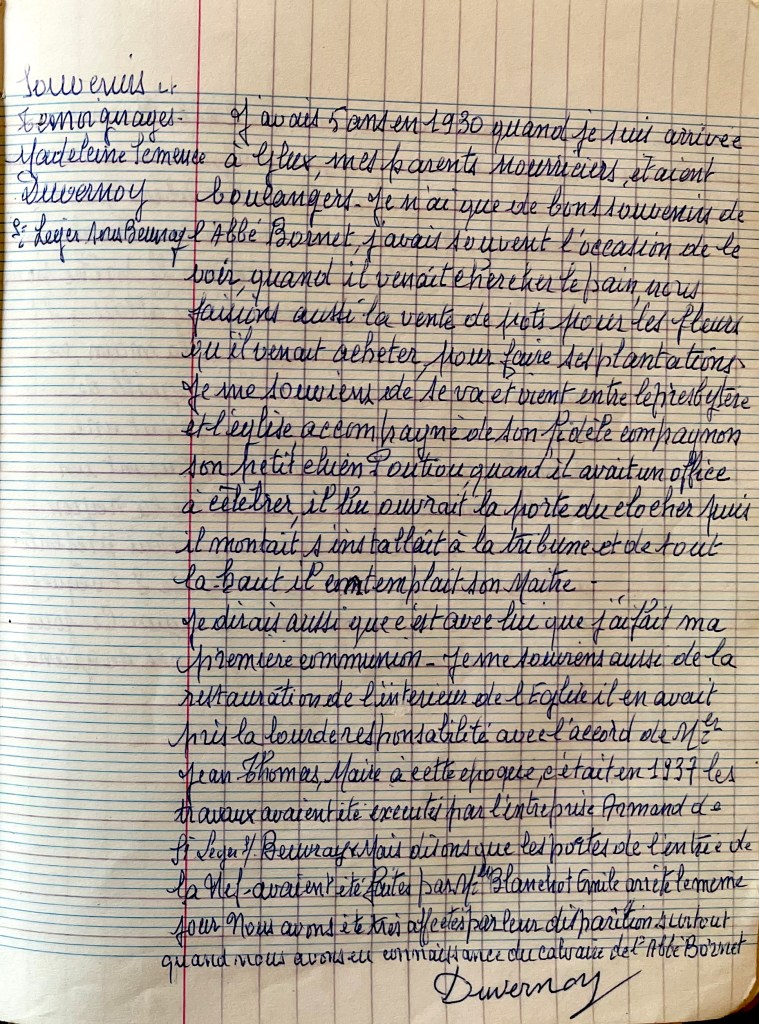 Souvenirs et
Temoignages.
Madeleine Semence
Duvernoy
St Leger sous Beuvray
J'avais 5 ans en 1930 quand je suis arrivée
à Glux, mes parents nourriciers, étaient
boulangers. Je n'ai que de bons souvenirs de
l'Abbé Bornet, j'avais souvent l'occasion de le
voir, quand il venait chercher le pain, nous
faisions aussi la vente de pots pour les fleurs
qu'il venait acheter, pour faire ses plantations.
Je me souviens de se va et vient entre le presbytère
et l'église accompagné de son fidèle compagnon
son petit chien Poutiou, quand il avait un office
à célébrer, il lui ouvrait la porte du clocher puis
il montait s'installait à la tribune et de tout
la haut il contemplait son Maitre -
Je dirais aussi que c'est avec lui que j'ai fait ma
première communion - Je me souviens aussi de la
restauration de l'intérieur de l'Eglise il en avait
pris la lourde responsabilité avec l'accord de Mr
Jean Thomas, Maire à cette epoque, c'était en 1937 les
travaux avaient été executés par l'entreprise Armand de
St Leger s/ Beuvray. Mais disons que les portes de l'entrée de
la Nef - avaient été faites par Mr Blanchot Emile arrêté le meme
jour Nous avons été très affectés par leur disparition surtout
quand nous avons eu connaissance du calvaire de l'Abbé Bornet
Duvernoy